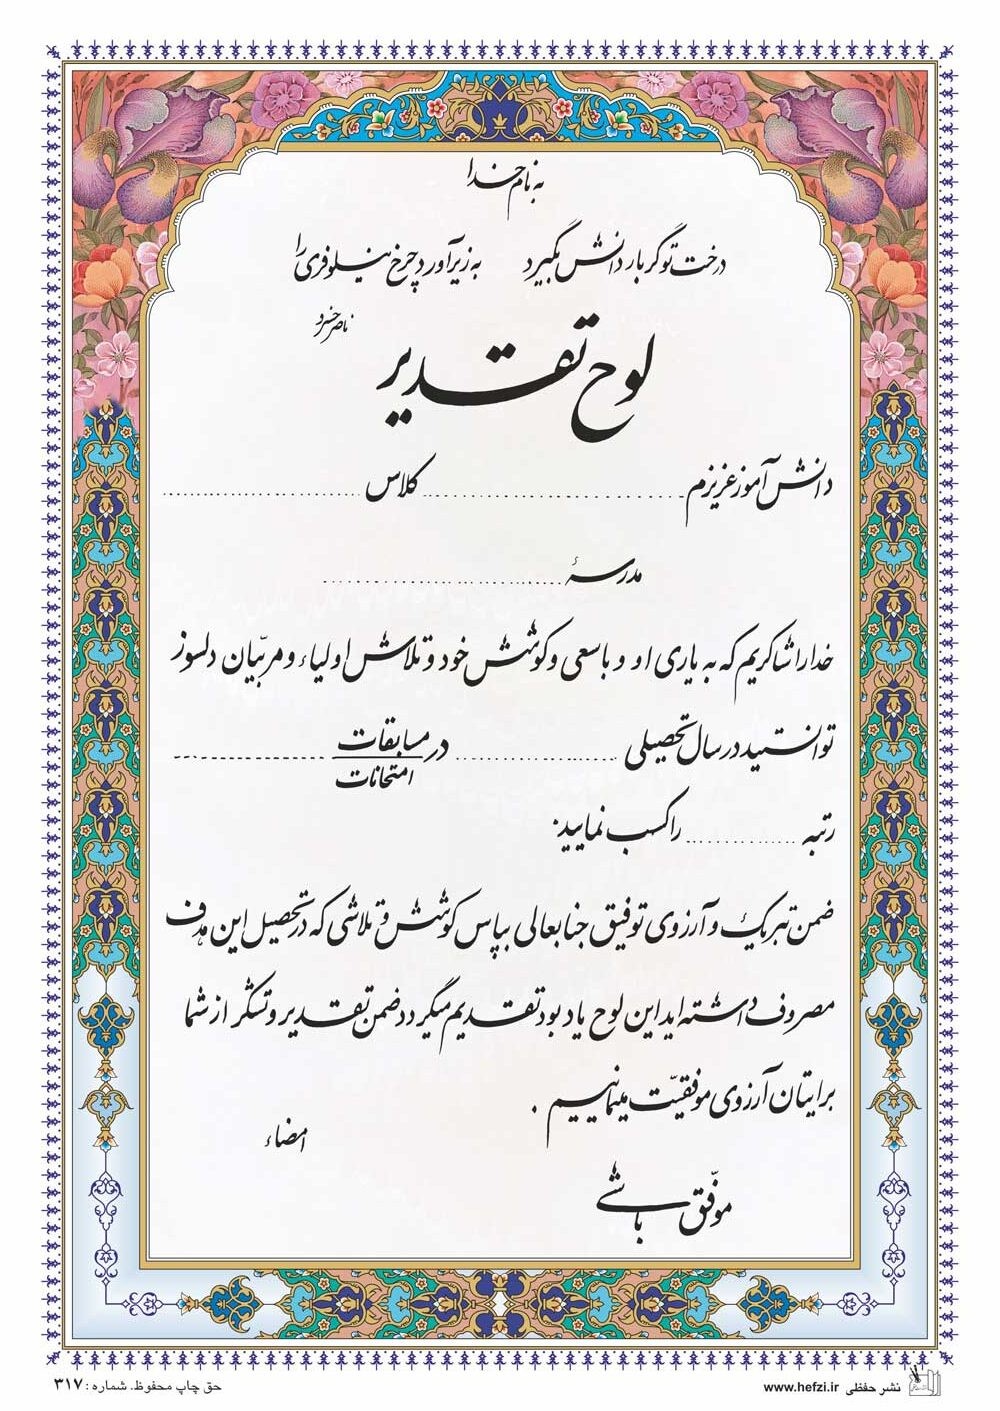 به نام خدا
درخت تو گر بار دانش بگیرد به زیر آورد چرخ نیلوفری را
ناصر خسرو
لوح تقدیر
دانش آموز عزیزم .................... کلاس ....................
مدرسهٔ ....................
خدا را شاکریم که به یاری او و با سعی و کوشش خود و تلاش اولیاء و مربّیان دلسوز
توانستید در سال تحصیلی .................... در مسابقات ....................
امتحانات
رتبه .................... را کسب نمایید.
ضمن تبریک و آرزوی توفیق جنابعالی بپاس کوشش و تلاشی که در تحصیل این هدف
مصروف داشته اید این لوح یاد بود تقدیم میگردد ضمن تقدیر و تشکر از شما
برایتان آرزوی موفقیّت مینماییم .
امضاء
موفّق باشی
نشر حفظی www.hefzi.ir
حق چاپ محفوظ. شماره : ۳۱۷